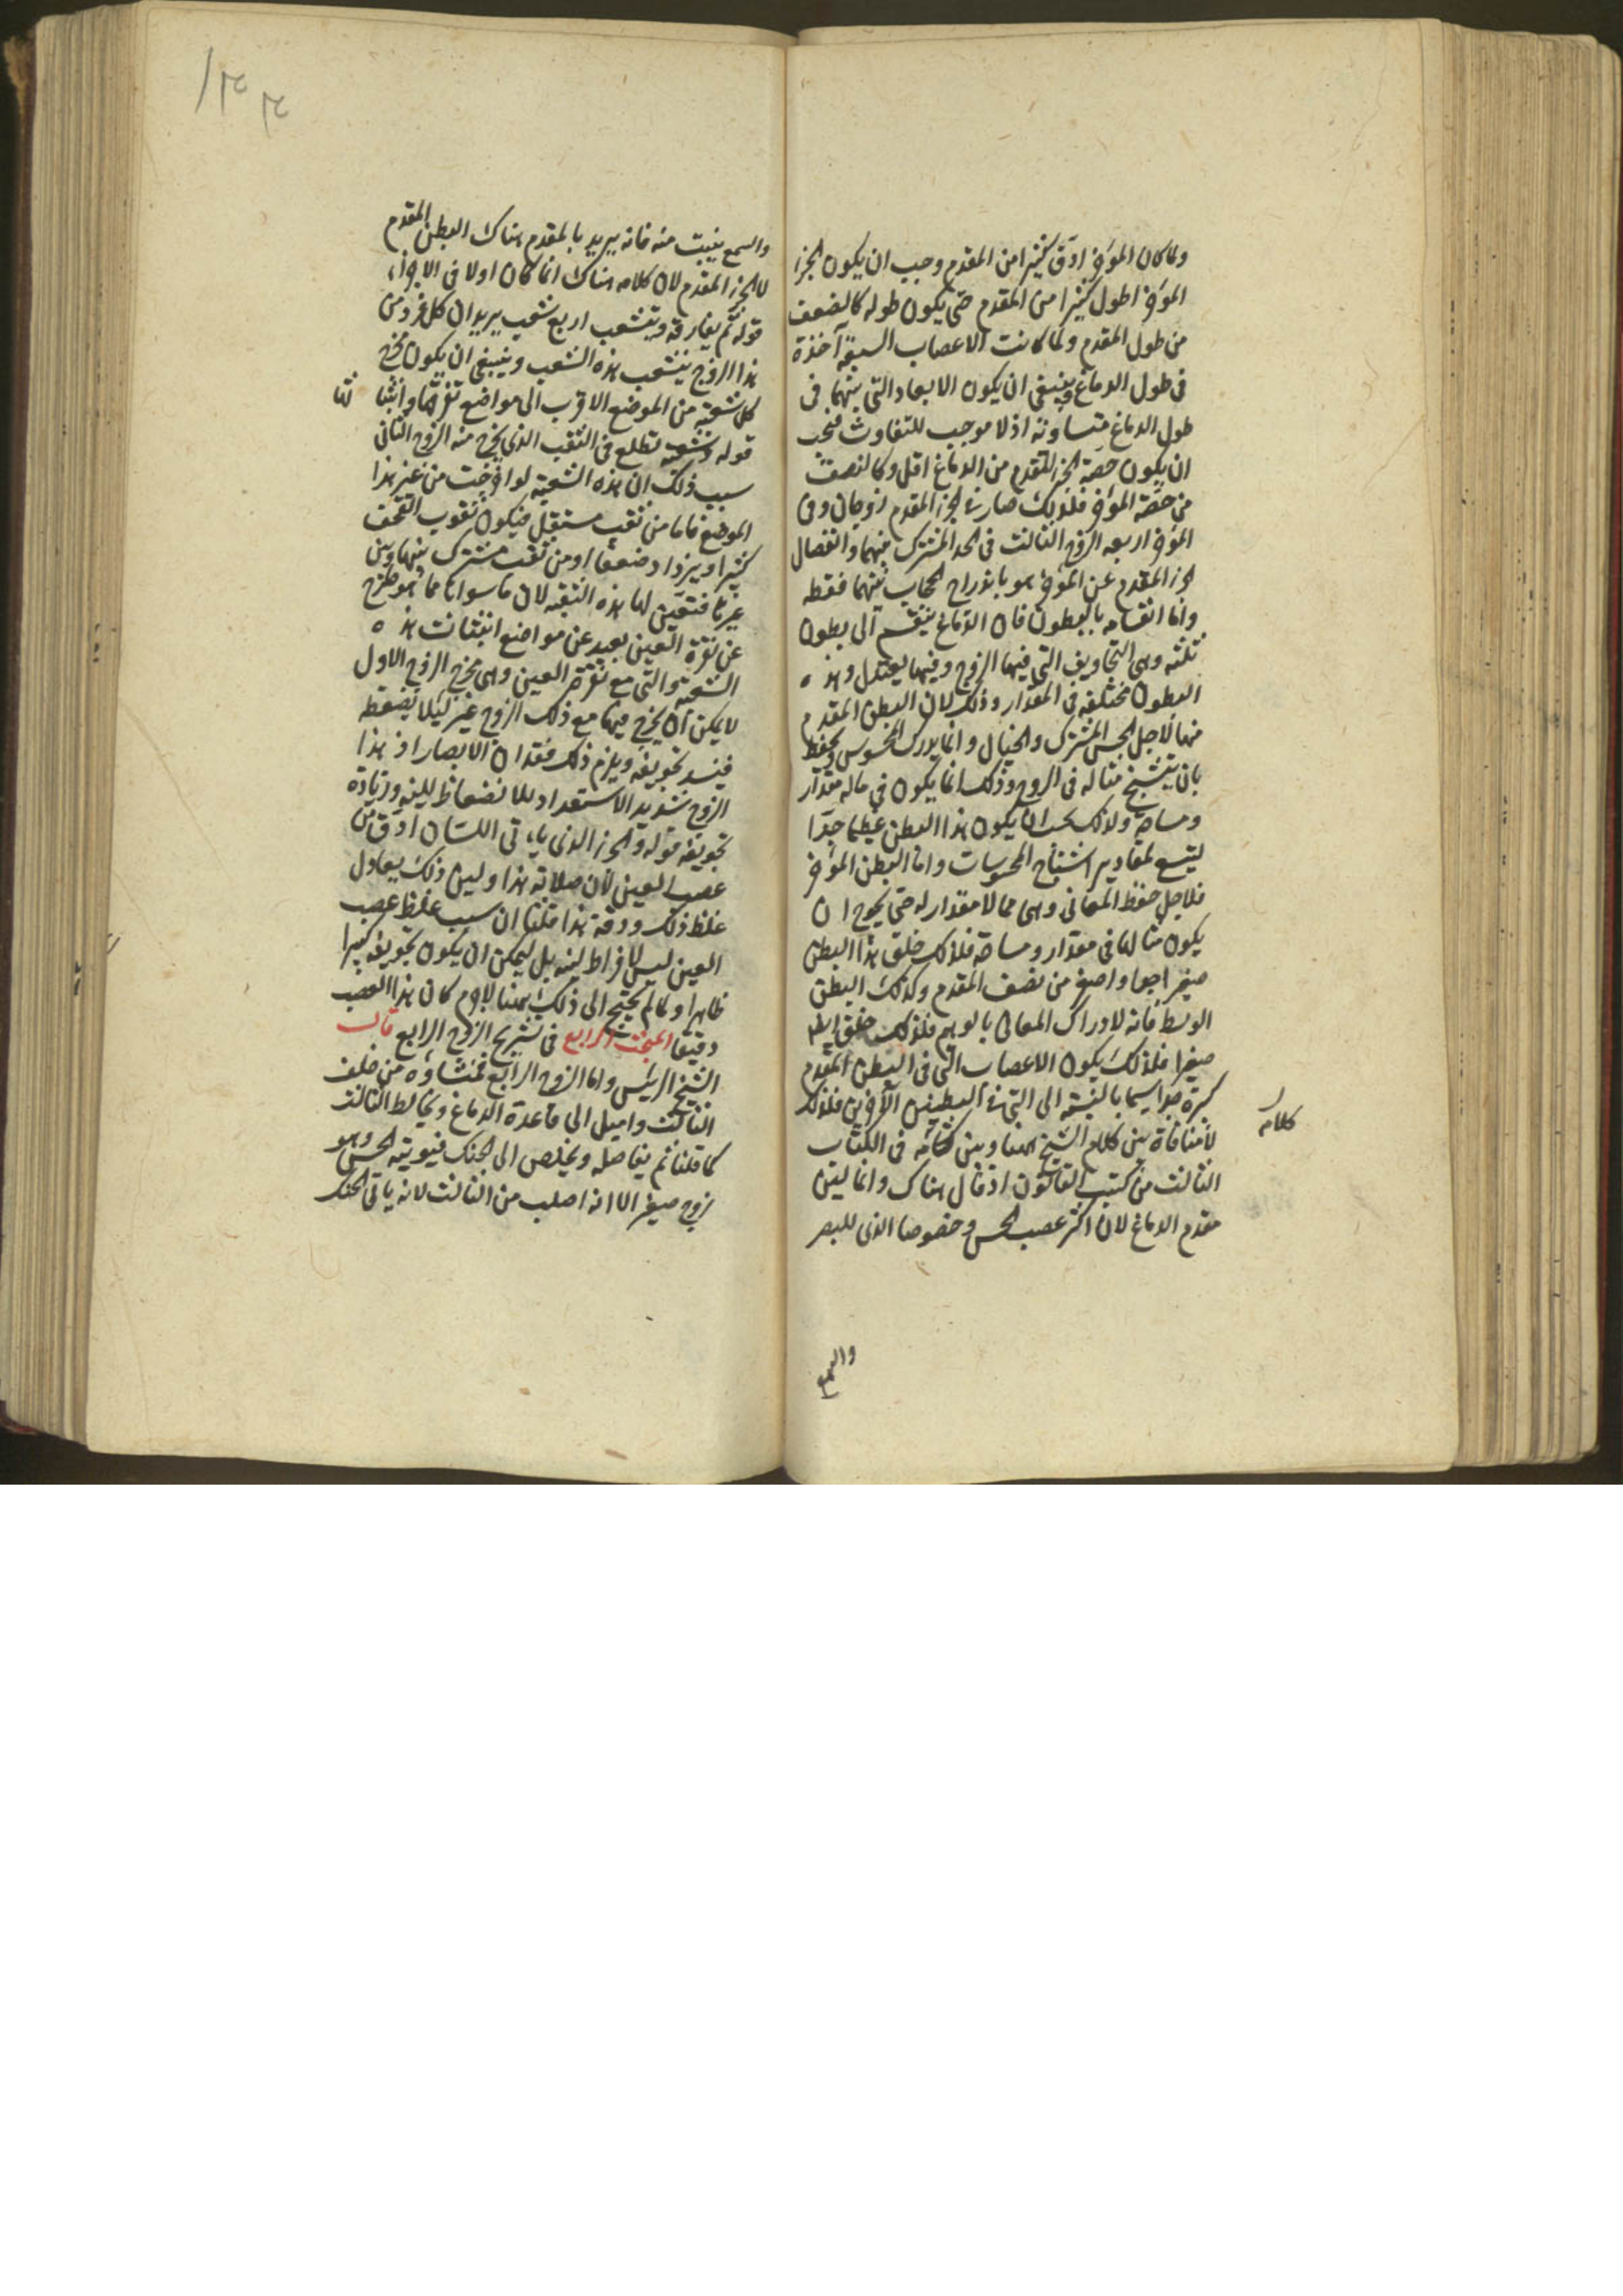 ولما كان المؤخر ادق كثيرا من المقدم وجب ان يكون الجزء
المؤخر اطول كثيرا من المقدم حتى يكون طوله كالضعف
من طول المقدم ولما كانت الاعصاب السبعة آخذة
فى طول الدماغ وينبغى ان يكون الابعاد التى بينهما فى
طول الدماغ متساوية اذ لا موجب للتفاوت فيجب
ان يكون حصة الجزء المقدم من الدماغ اقل وكالنصف
من حصة المؤخر فلذلك صار فى الجزء المقدم زوجان وفى
المؤخر اربعه الزوج الثالث فى الحد المشترك بينهما وانفصال
الجزء المقدم عن المؤخر هو باندراج الحجاب بينهما فقط
واما انقسامه بالبطون فان الدماغ ينقسم الى بطون
ثلثه وهى التجاويف التى فيها الروح وفيها يعتدل وهذه
البطون مختلفه فى المقدار وذلك لان البطن المقدم
منها لاجل الحس المشترك والخيال وانما يدرك المحسوس ويحفظ
بان يتشبح مثاله فى الروح وذلك انما يكون فى ماله مقدار
ومساحة ولذلك يجب ان يكون هذا البطن عظيما جدا
ليتسع لمقادير اشباح المحسوسات واما البطن المؤخر
فلاجل حفظ المعانى وهى مما لا مقدار له حتى يحوج ان
يكون مثالها فى مقدار ومساحة فلذلك خلق هذا البطن
صغيرا جدا واصغر من نصف المقدم وكذلك البطن
الوسط فانه لادراك المعانى بالوهم فلذلك خلق ايضا
صغيرا فلذلك يكون الاعصاب التى فى البطن المقدم
كثيرة جدا سيما بالنسبة الى التى فى البطنين الآخرين فلذلك
لا منافاة بين كلام الشيخ ههنا وبين كلامه فى الكتاب
كلامه
الثالث من كتب القانون اذ قال هناك وانما لين
مقدم الدماغ لان اكثر عصب الحس وخصوصا الذى للبصر
والسمع
والسمع ينبت منه فانه يريد بالمقدم هناك البطن المقدم
لا الجزء المقدم لان كلامه هناك انما كان اولا فى الاجزاء
قوله ثم يفارقه ويتشعب اربع شعب يريد ان كل فرد من
هذا الزوج يتشعب هذه الشعب وينبغى ان يكون مخرج
كل شعبة من الموضع الاقرب الى مواضع تفرقها وانبثاثها
قوله وشعبه تطلع فى الثقب الذى يخرج منه الزوج الثانى
سبب ذلك ان هذه الشعبه لو اخرجت من غير هذا
الموضع فاما من ثقب مستقل فيكون ثقوب القحف
كثيرا ويزداد ضعفا او من ثقب مشترك بينها وبين
غيرها فتعين لها هذه الثقبه لان ما سواها مما هو خارج
عن نقرة العين بعيد عن مواضع انبثاث هذه
الشعبة والتى مع نقرة العين وهى مخرج الزوج الاول
لا يمكن ان يخرج فيها مع ذلك الزوج غيره ليلا يضغطه
فينسد تجويفه ويلزم ذلك فقدان الابصار اذ هذا
الزوج شديد الاستعداد للانضغاط للينه وزيادة
تجويفه قوله والجزء الذى ياتى اللسان ادق من
عصب العين لان صلابة هذا ولين ذلك يعادل
غلظ ذلك ودقة هذا قلنا ان سبب غلظ عصب
العين ليس لافراط لينه بل ليمكن ان يكون تجويفه كبيرا
ظاهرا ولما لم يحتج الى ذلك ههنا لاجرم كان هذا العصب
دقيقا المبحث الرابع فى تشريح الزوج الرابع قال
الشيخ الرئيس واما الزوج الرابع فمنشاؤه من خلف
الثالث واميل الى قاعدة الدماغ ويخالط الثالث
كما قلنا ثم يفاصله ويخلص الى الحنك فيؤتيه الحس وهو
زوج صغير الا انه اصلب من الثالث لانه ياتى الحنك